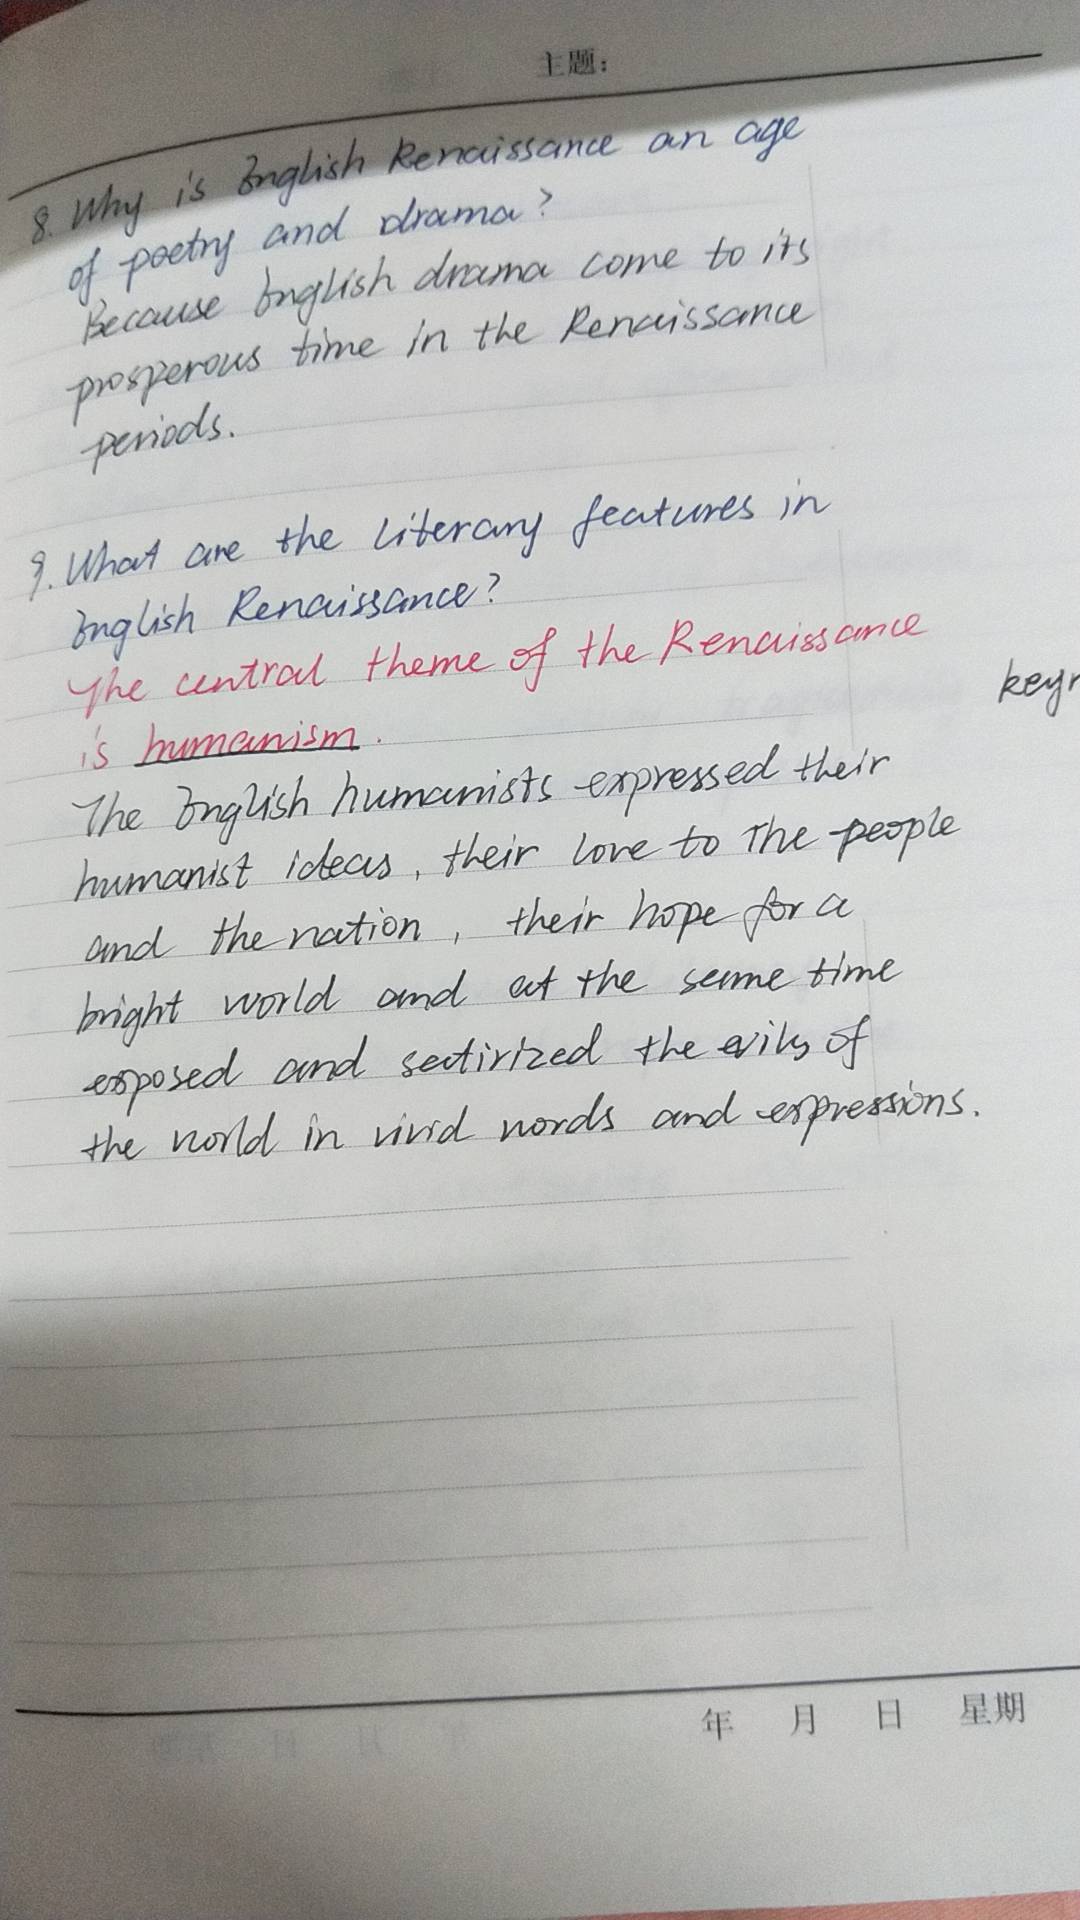 主题：
8. Why is English Renaissance an age
of poetry and drama?
Because English drama come to its
prosperous time in the Renaissance
periods.
9. What are the literary features in
English Renaissance?
The central theme of the Renaissance
is humanism.
The English humanists expressed their
humanist ideas, their love to The people
and the nation, their hope for a
bright world and at the same time
exposed and satirized the evils of
the world in vivid words and expressions.
年 月 日 星期